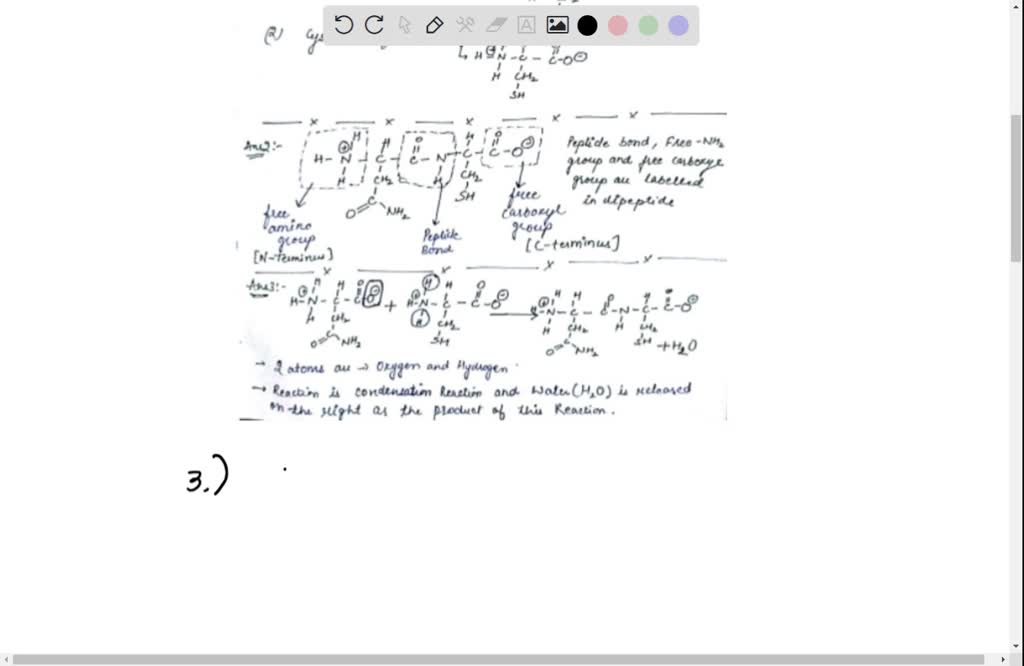 (2) Cys
H N - C - C-O⊖
H CH₂
SH
Ans2:- H - N - C - C - N - C - C - O⊖
Peptide bond, Free-NH₂
group and free carboxyl
group are labelled
in dipeptide
CH₂ H CH₂
O=C NH₂ SH
free
amino
group
[N-terminus]
Peptide
Bond
free
carboxyl
group
[C-terminus]
Ans3:- H-N-C-C-O⊖ + H-N-C-C-O⊖ → H-N-C-C-N-C-C-O⊖
H CH₂ H CH₂ H CH₂ H CH₂
O=C NH₂ SH O=C NH₂ SH +H₂O
→ 2 atoms are → Oxygen and Hydrogen.
→ Reaction is condensation Reaction and Water (H₂O) is released
on the right as the product of this Reaction.
3.)